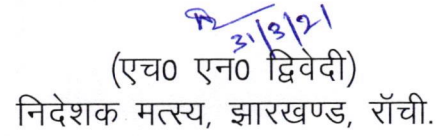 31/3/21
(एच0 एन0 द्विवेदी)
निदेशक मत्स्य, झारखण्ड, रॉची.